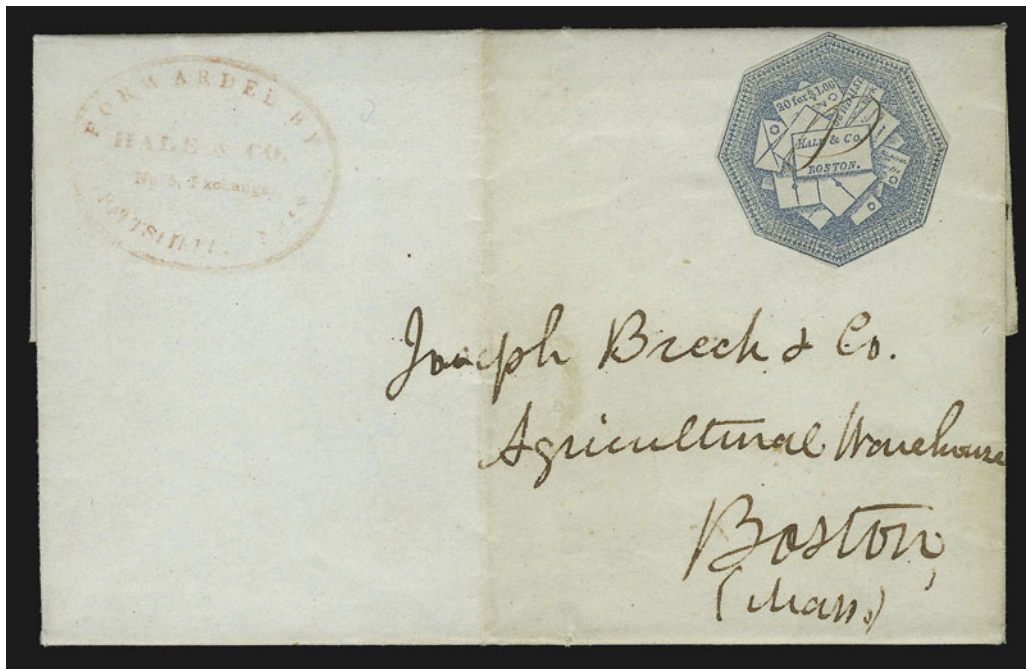 FORWARDED BY
HALE & CO.
No. 5, Exchange,
PITTSFIELD, MASS
20 for $1.00
HALE & Co.
BOSTON.
Joseph Breck & Co.
Agricultural Warehouse
Boston,
(Mass.)